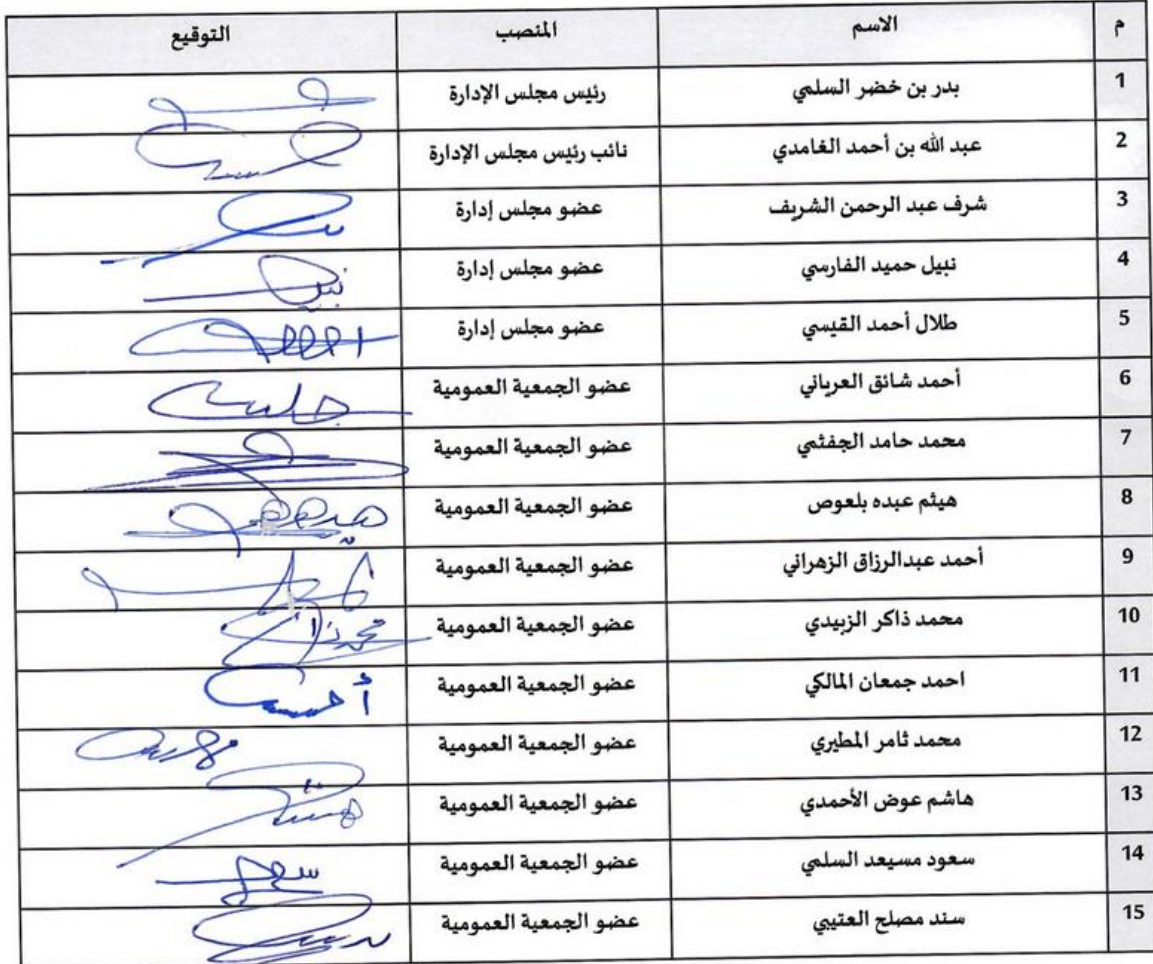 م الاسم المنصب التوقيع
1 بدر بن خضر السلمي رئيس مجلس الإدارة
2 عبد الله بن أحمد الغامدي نائب رئيس مجلس الإدارة
3 شرف عبد الرحمن الشريف عضو مجلس إدارة
4 نبيل حميد الفارسي عضو مجلس إدارة
5 طلال أحمد القيسي عضو مجلس إدارة
6 أحمد شائق العرياني عضو الجمعية العمومية
7 محمد حامد الجفثمي عضو الجمعية العمومية
8 هيثم عبده بلعوص عضو الجمعية العمومية
9 أحمد عبدالرزاق الزهراني عضو الجمعية العمومية
10 محمد ذاكر الزبيدي عضو الجمعية العمومية
11 احمد جمعان المالكي عضو الجمعية العمومية
12 محمد ثامر المطيري عضو الجمعية العمومية
13 هاشم عوض الأحمدي عضو الجمعية العمومية
14 سعود مسيعد السلمي عضو الجمعية العمومية
15 سند مصلح العتيبي عضو الجمعية العمومية